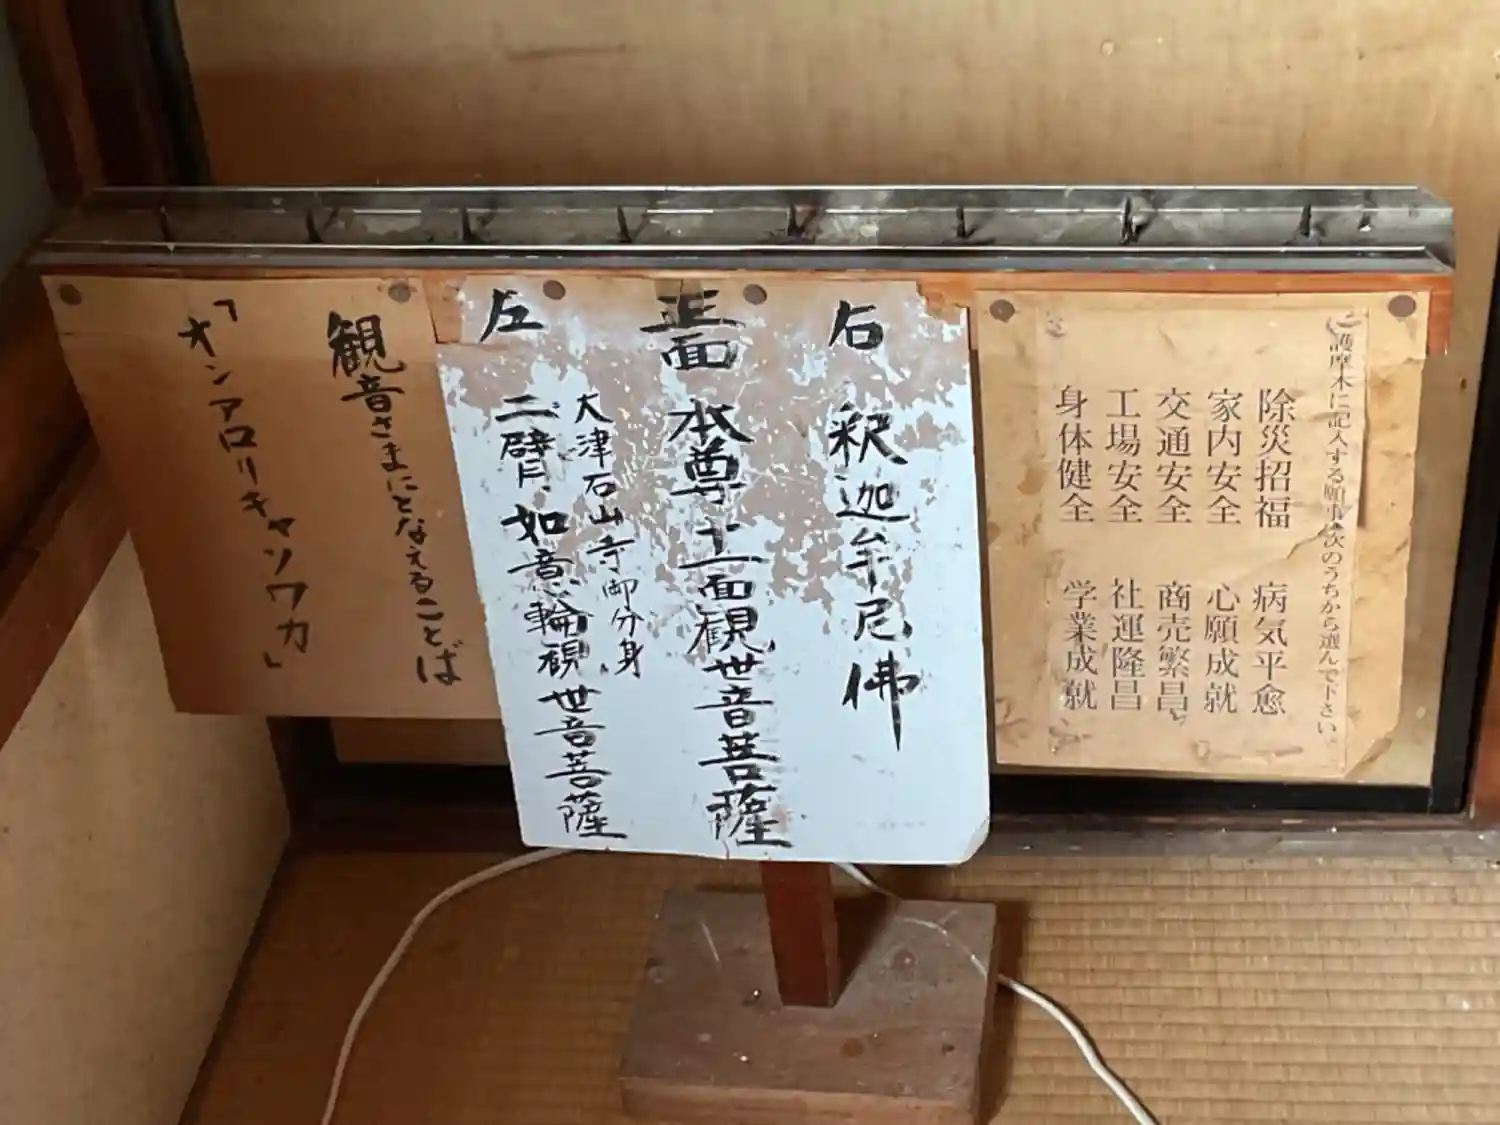 護摩木に記入する願事は次のうちから選んで下さい。
除災招福 病気平愈
家内安全 心願成就
交通安全 商売繁昌
工場安全 社運隆昌
身体健全 学業成就
右 釈迦牟尼佛
正面 本尊十一面観世音菩薩
左 大津石山寺御分身
二臂如意輪観世音菩薩
観音さまにとなえることば
「オンアロリキャソワカ」